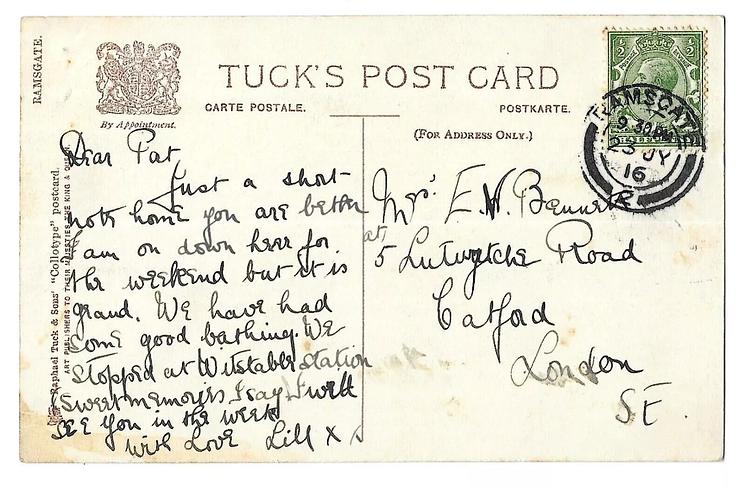 RAMSGATE.
By Appointment.
TUCK'S POST CARD
CARTE POSTALE.
POSTKARTE.
(FOR ADDRESS ONLY.)
RAMSGATE
9.30 PM
23 JY
16
Raphael Tuck & Sons' "Collotype" postcard.
ART PUBLISHERS TO THEIR MAJESTIES THE KING & QUEEN.
Dear Pat
Just a short
note home you are better
I am on down here for
the weekend but it is
grand. We have had
some good bathing. We
stopped at Witstable station
sweet memories I say I will
see you in the week
with Love Lill x
Mrs. E.W. Bennett
at
5 Lutwytche Road
Catford
London
SE